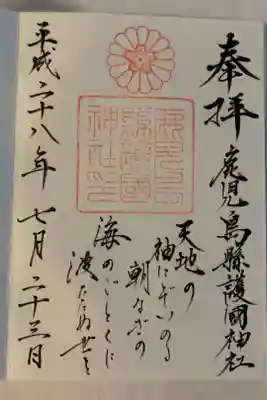 奉拝
鹿児島縣護國神社
鹿児島
縣護國
神社印
天地の
神にぞいのる
朝なぎの
海のごとくに
波たゝぬ世を
平成二十八年七月二十三日